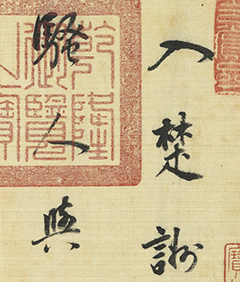 入楚詶
騷人與
乾隆御覽之寶